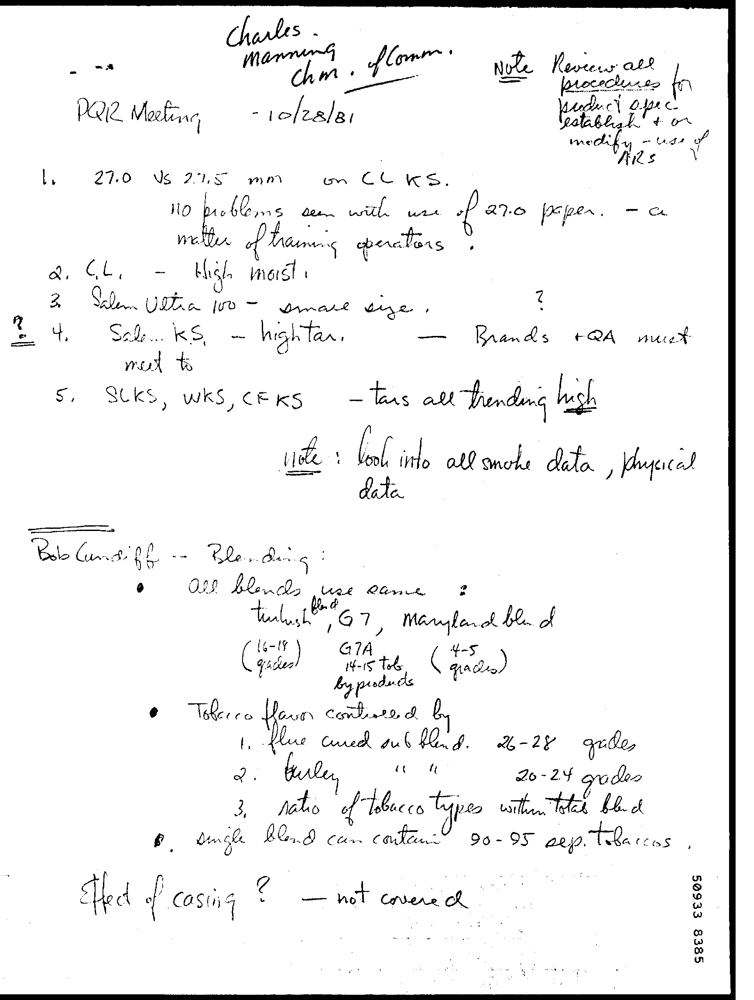 Charles.
Manning
Chm. of Comm.
Note Review all
procedures for
product spec
establish + or
modify - use of
ARs
PQR Meeting - 10/28/81
1. 27.0 vs 27.5 mm on CL KS.
no problems seen with use of 27.0 paper. - a
matter of training operators.
2. C.L. - High moist.
3. Salem Ultra 100 - smoke size. ?
? 4. Salem KS. - high tar. — Brands + QA must
meet to
5. SLKS, WKS, CFKS - tars all trending high
Note: look into all smoke data, physical
data
Bob Cundiff -- Blending:
• All blends use same :
turkish blend, G7, maryland blend
(16-18 grades) G7A (4-5 grades)
14-15 tob.
by products
• Tobacco flavor controlled by
1. flue cured sub blend. 26-28 grades
2. burley " " 20-24 grades
3. ratio of tobacco types within total blend
• single blend can contain 90-95 sep. tobaccos.
Effect of casing? — not covered
50933 8385